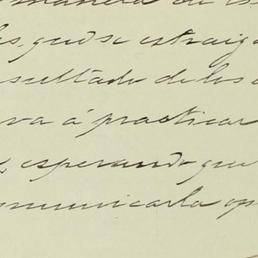 manera de
es, que se estraiga
resultado de los
va á practicar
, esperando que
comunicarla op